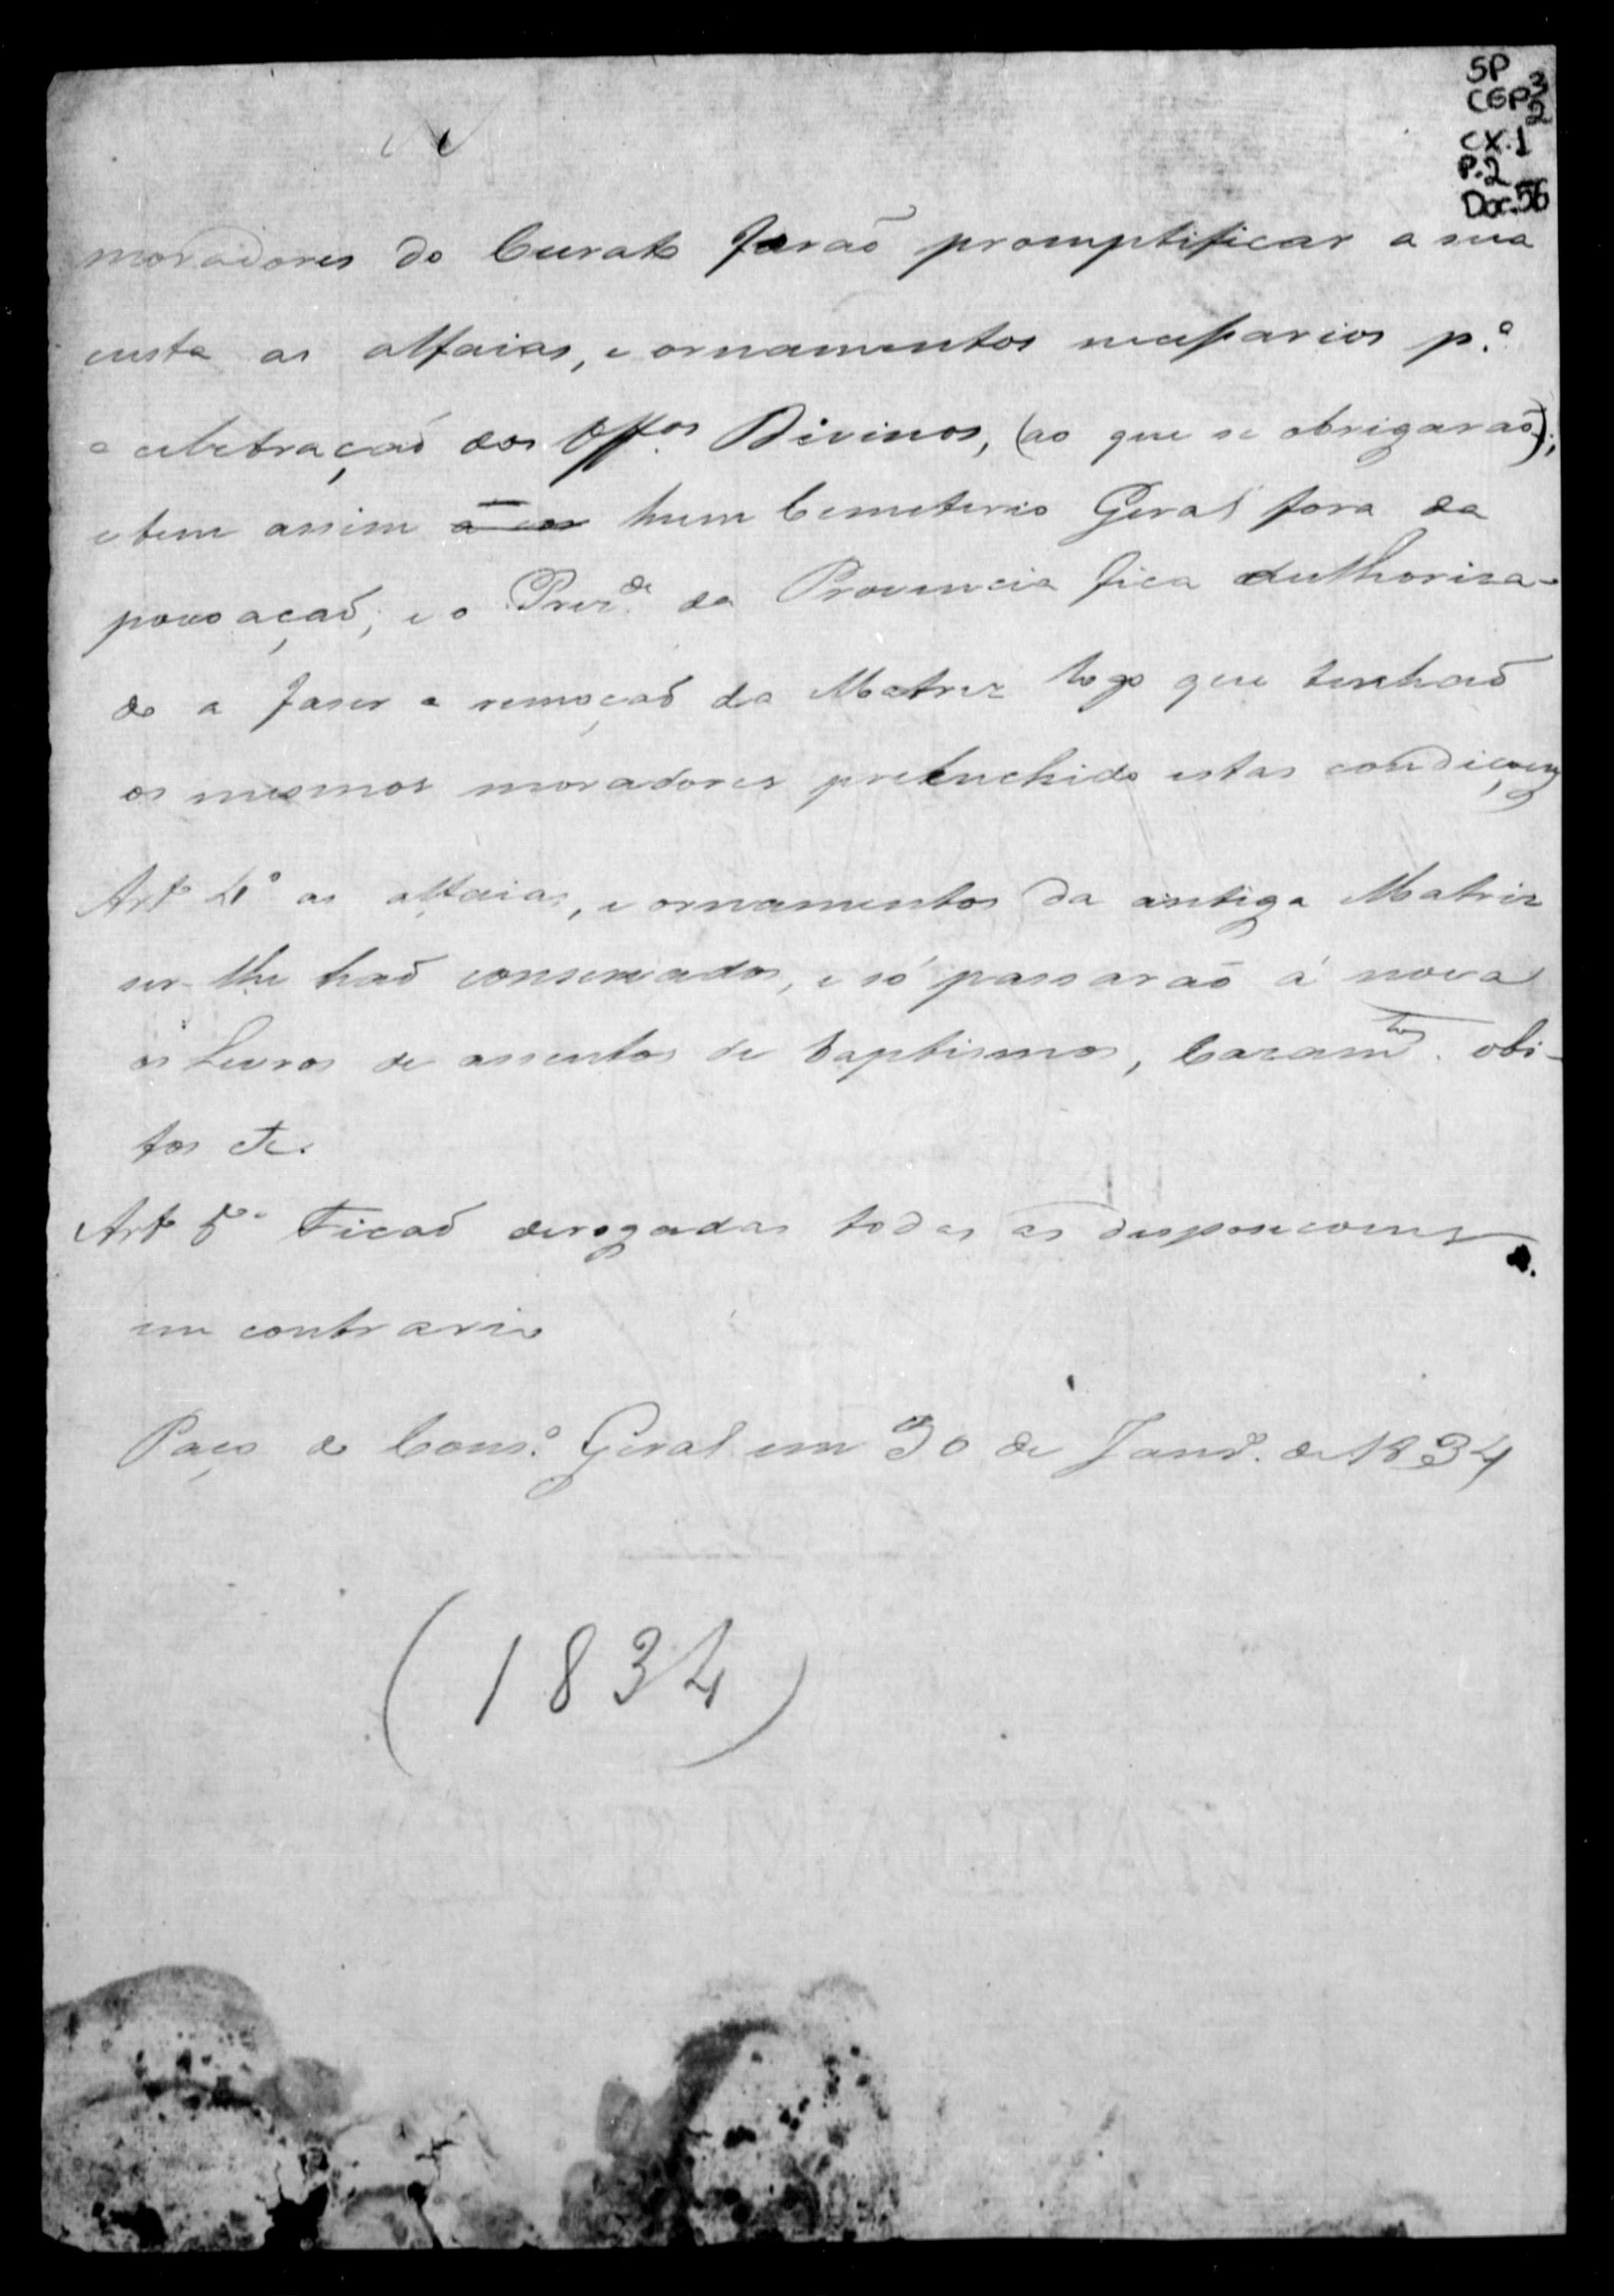 SP
CGP 3
2
CX. 1
P. 2
Doc. 56
moradores do Curato farão promptificar a sua
custa as alfaias, e ornamentos necessarios p.ª
a celebração dos Off.os Divinos, (ao que se obrigarão);
e bem assim hum Cemeterio Geral fora da
povoação; e o Prez.de da Provincia fica authorisa-
do a faser a remoção da Matriz logo que tenhaõ
os mesmos moradores prehenchido estas condiçoens
Art. 4º as alfaias, e ornamentos da antiga Matriz
ser-lhe haõ conservados, e só passarão á nova
os Livros de assentos de baptismos, Cazam.tos obi-
tos &c.
Art. 5º Ficaõ derogadas todas as disposicoens
em contrario
Paço do Cons.º Geral em 30 de Janr.º de 1834
(1834)